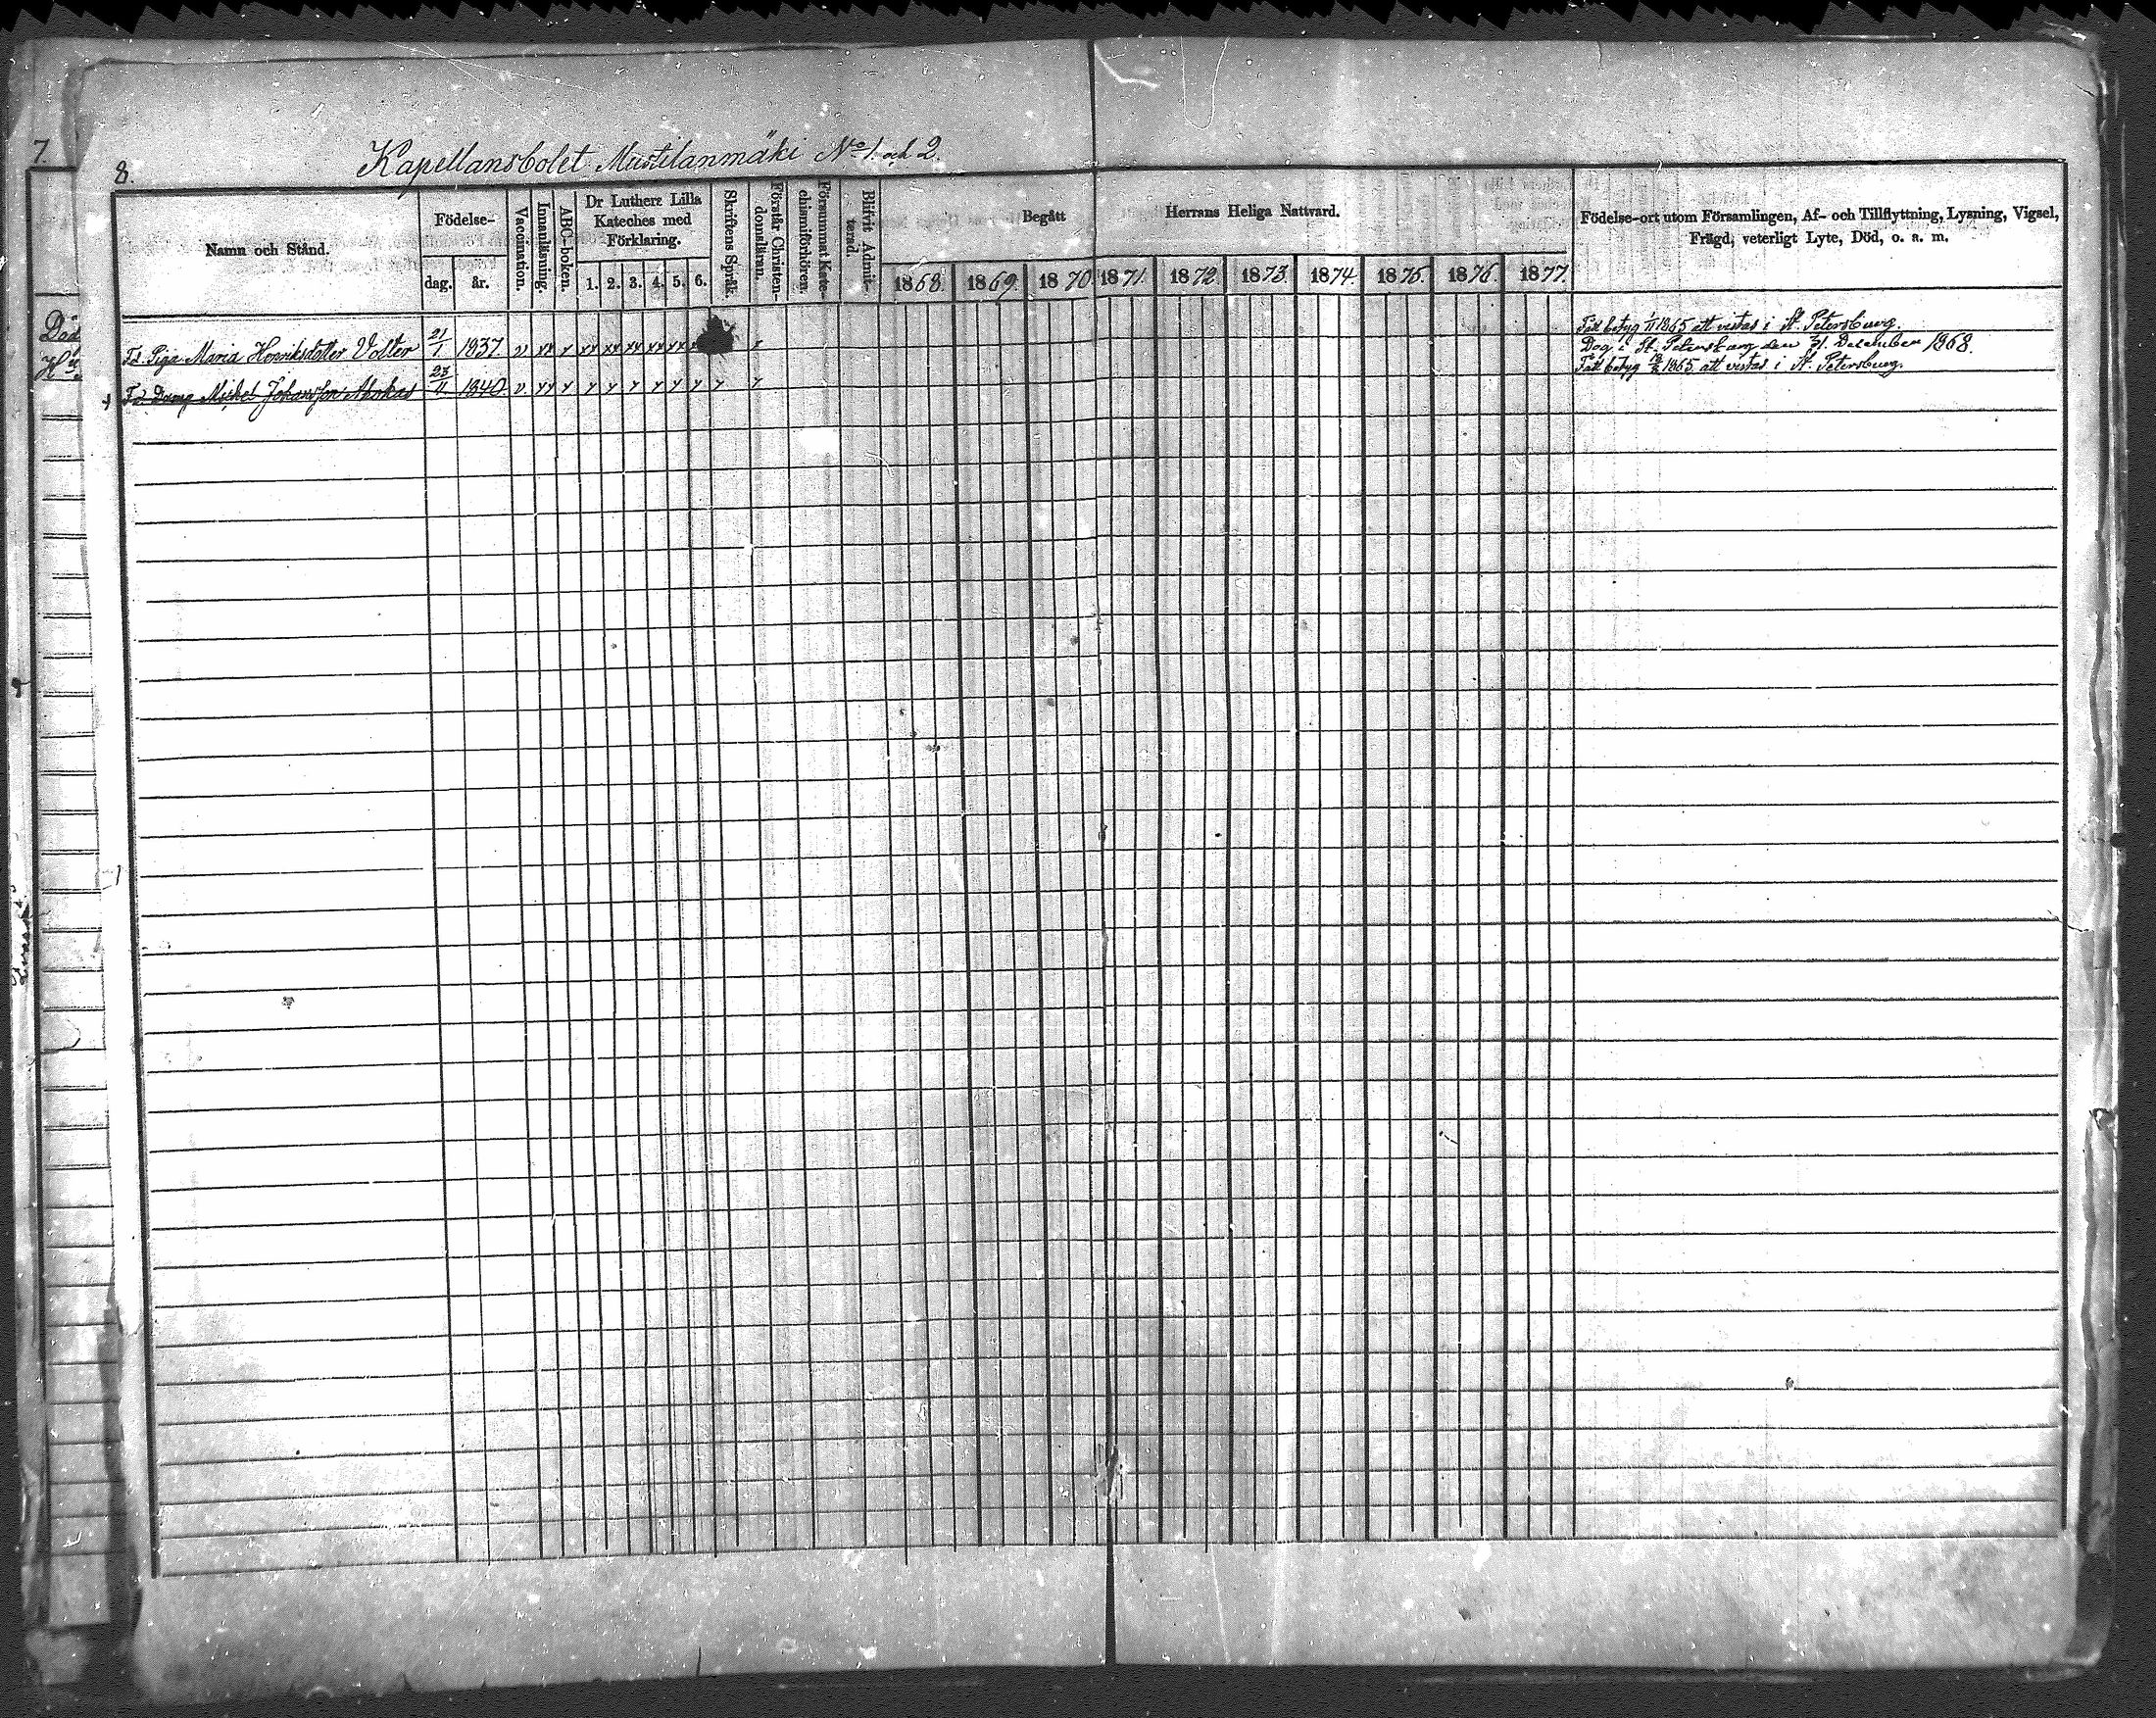 7.
8.
Kapellansbolet Mustilanmäki No 1. och 2.
Namn och Stånd.
Födelse-
dag. år.
Vaccination.
Innanläsning.
ABC-boken.
Dr Luthers Lilla
Kateches med
Förklaring.
1. 2. 3. 4. 5. 6.
Skriftens Språk.
Förstår Christen-
domsläran.
Försummat Kate-
chismiförhören.
Blifvit Admit-
terad.
Begått Herrans Heliga Nattvard.
1868. 1869. 1870. 1871. 1872. 1873. 1874. 1875. 1876. 1877.
Födelse-ort utom Församlingen, Af- och Tillflyttning, Lysning, Vigsel,
Frägd, veterligt Lyte, Död, o. s. m.
Fått betyg 1/11 1865 att vistas i St. Petersburg.
Fd. Piga Maria Henriksdotter Volter 21/1 1837. v xx x xx xx xx xx xx x
Dog i St. Petersburg den 31. December 1868.
Fått betyg 1865 att vistas i St. Petersburg.
Fd. Dräng Michel Johansson Ahokas 23/11 1840. v. xx x x x x x x x x x